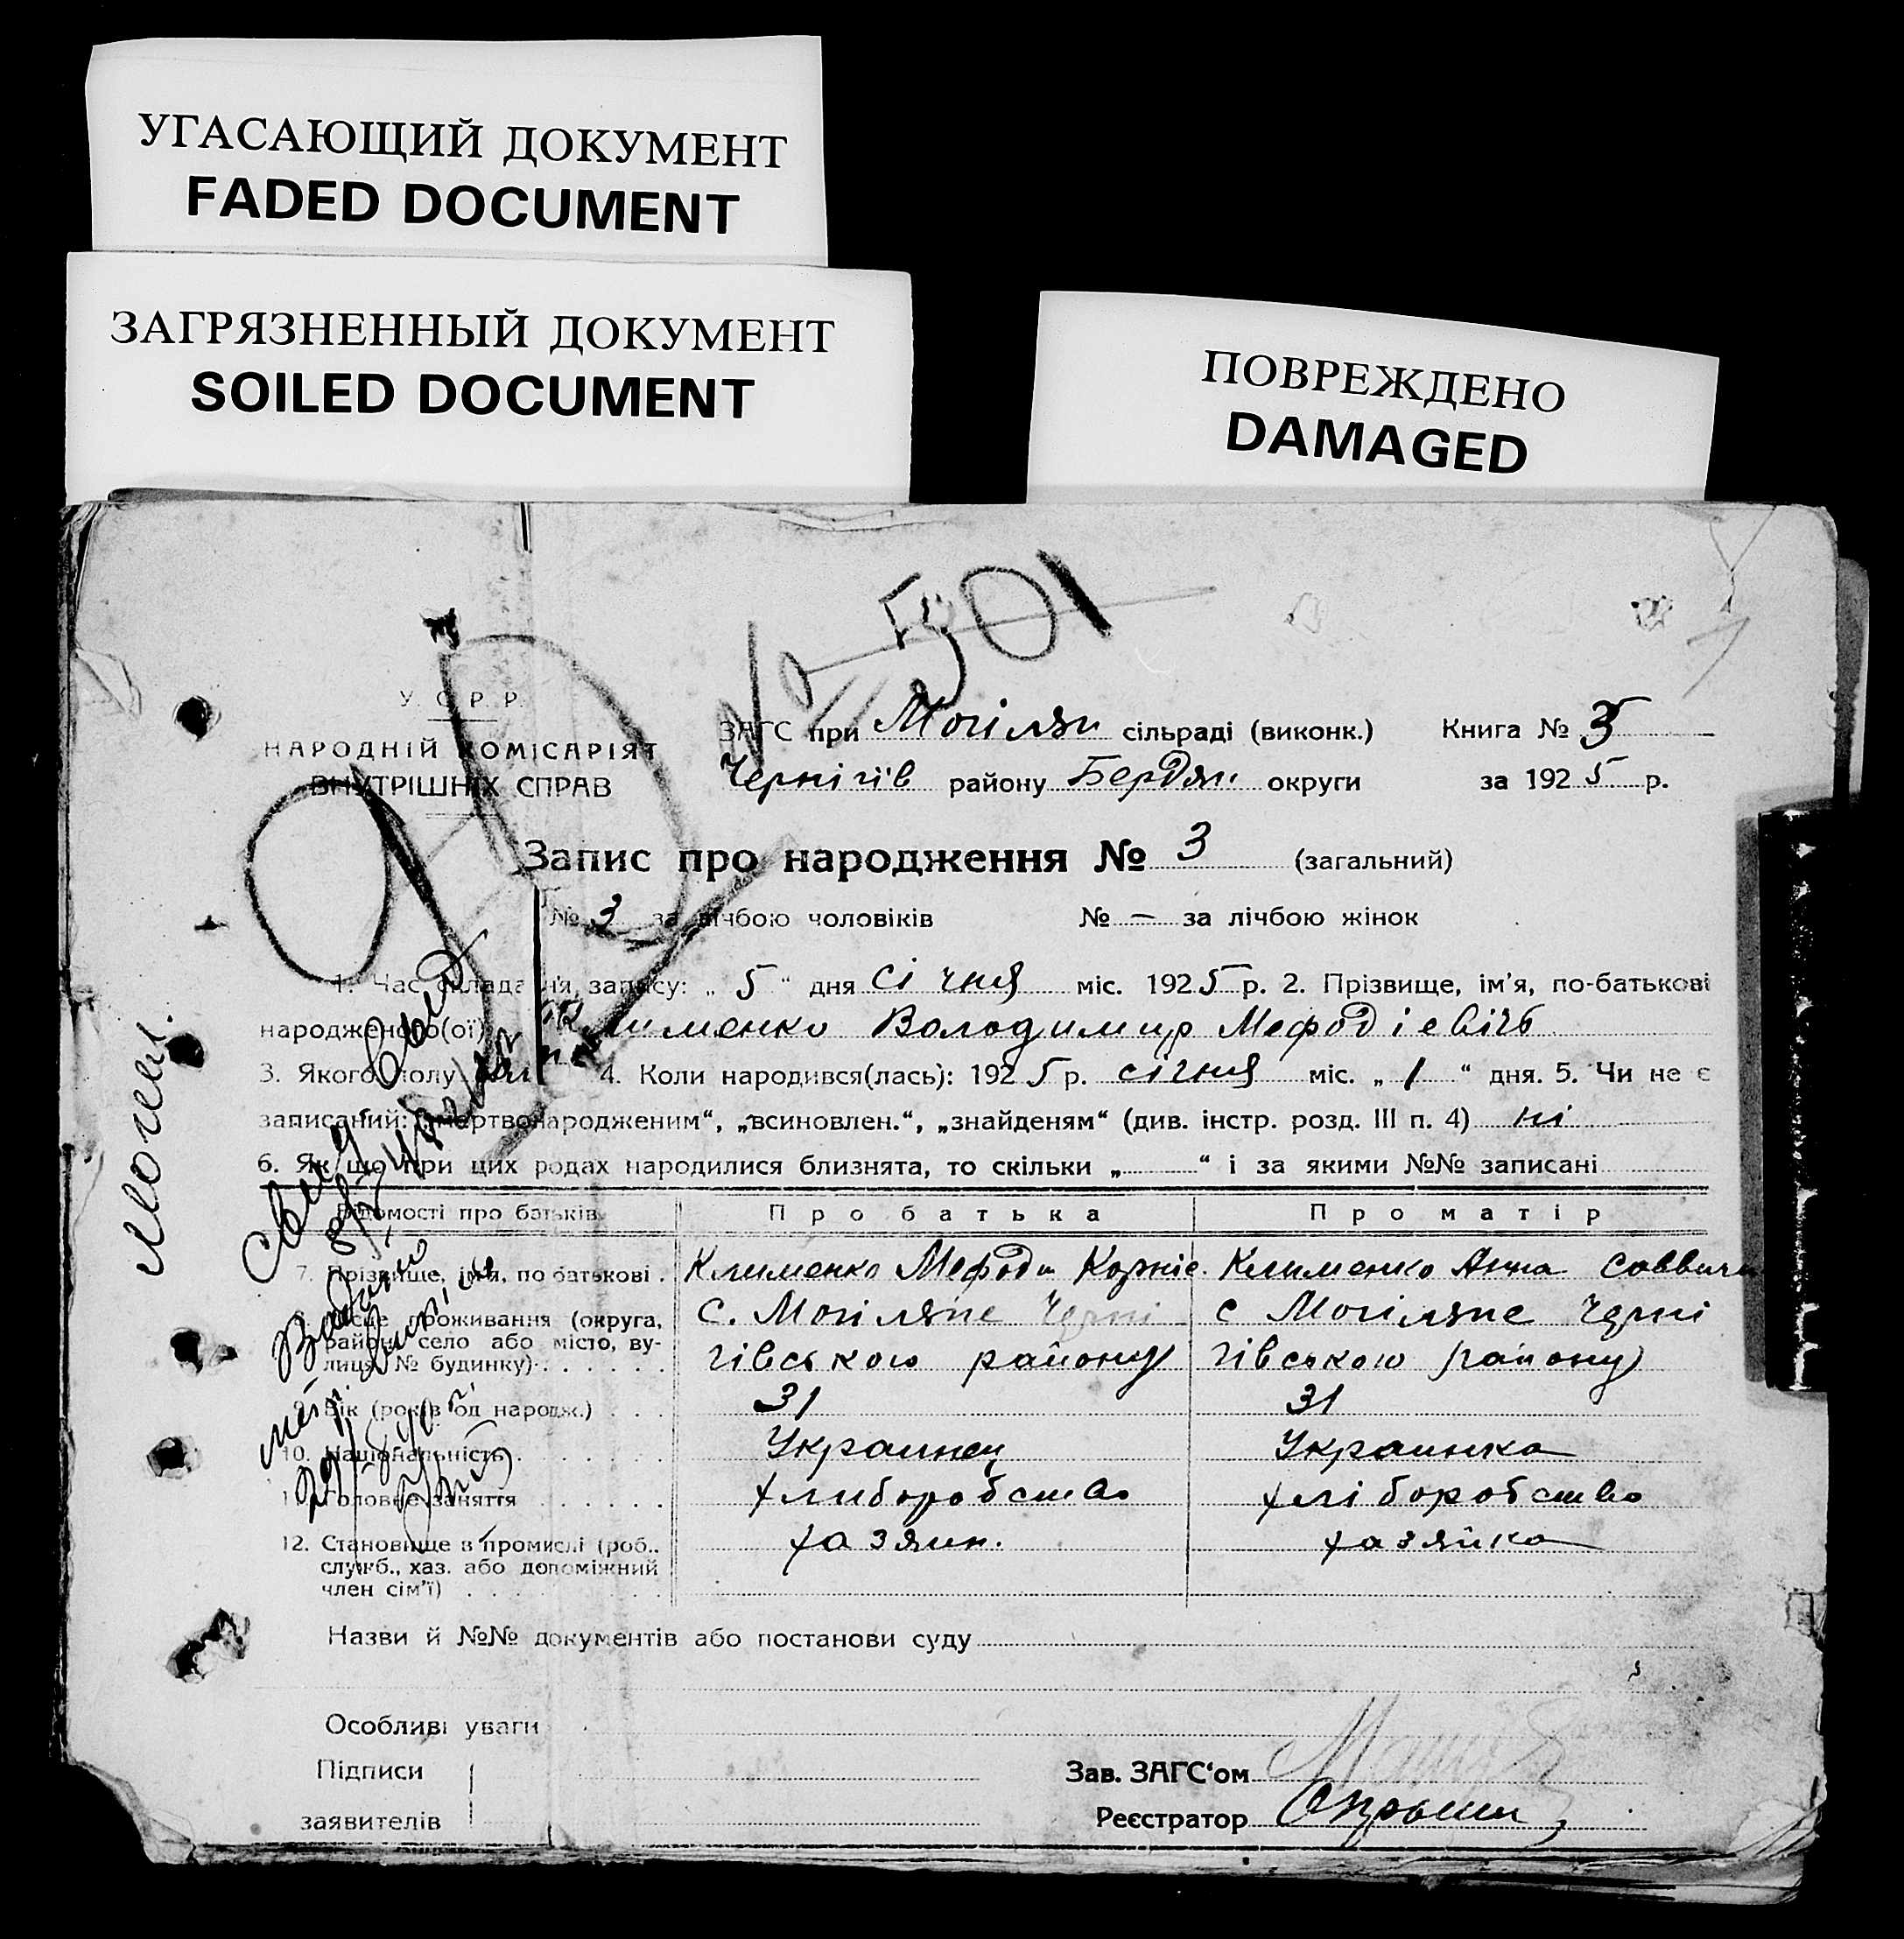 УГАСАЮЩИЙ ДОКУМЕНТ
FADED DOCUMENT
ЗАГРЯЗНЕННЫЙ ДОКУМЕНТ
SOILED DOCUMENT
ПОВРЕЖДЕНО
DAMAGED
№ 501
У. С. Р. Р.
НАРОДНІЙ КОМІСАРІЯТ
ВНУТРІШНІХ СПРАВ
ЗАГС при Могілян сільраді (виконк.) Книга № 3
Чернігів району Бердян округи за 1925 р.
Запис про народження № 3 (загальний)
№ 3 за лічбою чоловіків № — за лічбою жінок
1. Час складання запису: „ 5 “ дня січня міс. 1925 р. 2. Прізвище, ім'я, по-батькові
народженого(ої) Клименко Володимир Мефодіевічь
3. Якого полу 4. Коли народився(лась): 1925 р. січня міс. „ 1 “ дня. 5. Чи не є
записаний: „мертвонародженим“, „всиновлен.“, „знайденям“ (див. інстр. розд. III п. 4) ні
6. Як що при цих родах народилися близнята, то скільки „ “ і за якими №№ записані
Відомості про батьків Про батька Про матір
7. Прізвище, ім'я, по батькові . Клименко Мефоди Корніе. Клименко Анна Саввичн
8. Місце проживання (округа, с. Могіляне Черні с Могіляне Черні
район, село або місто, ву-
лиця, № будинку) гівського району гівського району
9. Вік (років од народж.) 31 31
10. Національність Украинец Украинка
11. Головне заняття хлиборобство хліборобство
12. Становище в промислі (роб., хазяин. хазяйка
служб., хаз. або допоміжний
член сім'ї)
Назви й №№ документів або постанови суду
Особливі уваги
Підписи
заявителів
Зав. ЗАГС‘ом
Реєстратор
Могил.